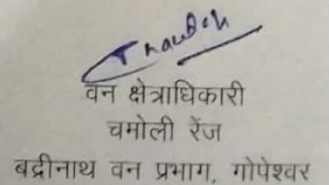 वन क्षेत्राधिकारी
चमोली रेंज
बद्रीनाथ वन प्रभाग, गोपेश्वर